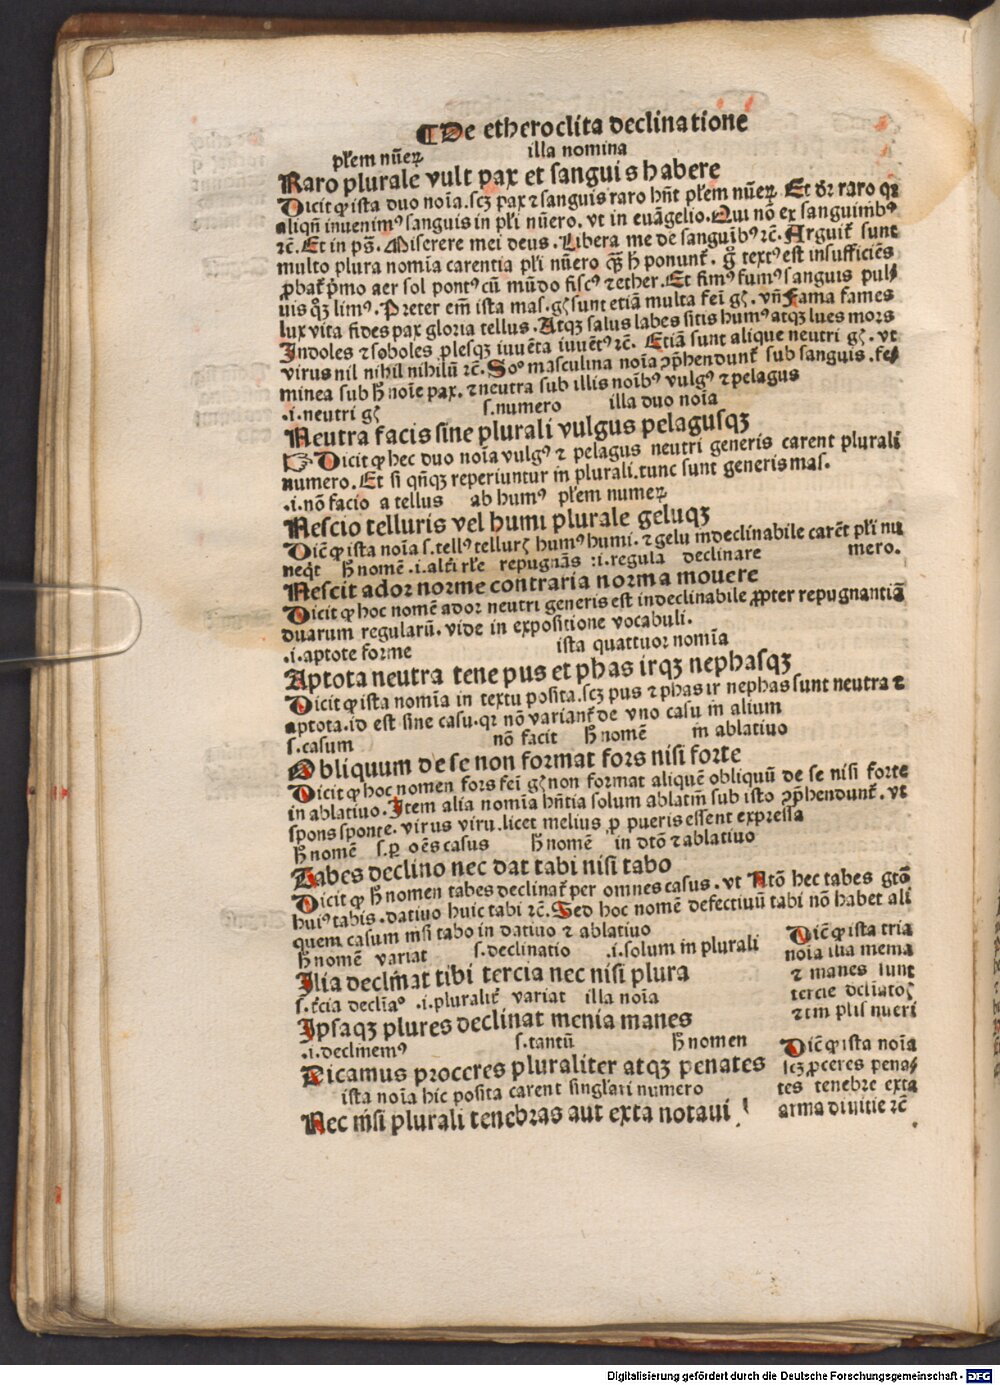 ¶De etheroclita declinatione
płem nūeꝝ illa nomina
Raro plurale vult pax et sanguis habere
Dicit ꝙ ista duo noīa.scꝫ pax ⁊ sanguis raro hn̄t płem nūeꝝ Et dr̄ raro qꝛ
aliqn̄ inuenimꝰ sanguis in pl̄i nūero. vt in euāgelio. Qui nō ex sanguinibꝰ
⁊c̄. Et in pš. Miserere mei deus. Libera me de sanguibꝰ ⁊c̄. Arguit̄ sunt
multo plura nomīa carentia pl̄i nūero qꝫ̄ h̄ ponunt̄. g̊ textꝰ est insufficiēs
ꝓbat̄ p̄mo aer sol pontꝰ cū mūdo fiscꝰ ⁊ ether. Et fimꝰ fumꝰ sanguis pul⸗
uis qꝫ̄ limꝰ. Preter em̄ ista mas. gꝭ sunt etiā multa fei̅ gꝭ. vn̄ Fama fames
lux vita fides pax gloria tellus. Atqꝫ salus labes sitis humꝰ atqꝫ lues mors
Indoles ⁊ soboles ꝓlesqꝫ iuuēta iuuētꝰ ⁊c̄. Etiā sunt alique neutri gꝭ. vt
virus nil nihil nihilū ⁊c̄. Soꝰ masculina noīa ꝯp̄hendunt̄ sub sanguis. fe⸗
minea sub h̄ noīe pax. ⁊ neutra sub illis noībꝰ vulgꝰ ⁊ pelagus
.i.neutri gꝭ s.numero illa duo noīa
Neutra facis sine plurali vulgus pelagusqꝫ
☞ Dicit ꝙ hec duo noīa vulgꝰ ⁊ pelagus neutri generis carent plurali
numero. Et si qn̄qꝫ reperiuntur in plurali.tunc sunt generis mas.
.i.nō facio a tellus ab humꝰ płem numeꝝ
Nescio telluris vel humi plurale geluqꝫ
Diē ꝙ ista noīa s.tellꝰ tellurꝭ humꝰ humi. ⁊ gelu indeclinabile carēt pl̄i nu
neq̄t h̄ nomē .i.alt̄i rl̄e repugnās :i.regula declinare mero.
Nescit ador norme contraria norma mouere
Dicit ꝙ hoc nomē ador neutri generis est indeclinabile ꝓpter repugnantiā
duarum regularū. vide in expositione vocabuli.
.i.aptote forme ista quattuor nomīa
Aptota neutra tene pus et phas irqꝫ nephasqꝫ
Dicit ꝙ ista nomīa in textu posita.scꝫ pus ⁊ phas ir nephas sunt neutra ⁊
aptota.id est sine casu.qꝛ nō variant̄ de vno casu in alium
s.casum nō facit h̄ nomē in ablatiuo
Obliquum de se non format fors nisi forte
Dicit ꝙ hoc nomen fors fei̅ gꝭ non format aliquē obliquū de se nisi forte
in ablatiuo. Item alia nomīa hn̄tia solum ablatm̄ sub isto ꝯp̄hendunt̄. vt
spons sponte. virus viru.licet melius ꝓ pueris essent expressa
h̄ nomē s.ꝑ oēs casus h̄ nomē in dtō ⁊ ablatiuo
Tabes declino nec dat tabi nisi tabo
Dicit ꝙ h̄ nomen tabes declinat̄ per omnes casus. vt Ntō hec tabes gtō
huiꝰ tabis.datiuo huic tabi ⁊c̄. Sed hoc nomē defectiuū tabi nō habet ali
quem casum nisi tabo in datiuo ⁊ ablatiuo
h̄ nomē variat s.declinatio .i.solum in plurali
Ilia declinat tibi tercia nec nisi plura
s.t̄cia declīaº .i.pluralit̄ variat illa noīa
Ipsaqꝫ plures declinat menia manes
Diē ꝙ ista tria
noīa ilia menia
⁊ manes sunt
tercie declīatoꝭ
⁊ tm̄ plis nūeri
.i.declinemꝰ s.tantū h̄ nomen
Dicamus proceres pluraliter atqꝫ penates
ista noīa hic posita carent singl̄ari numero
Nec nisi plurali tenebras aut exta notaui
Diē ꝙ ista noīa
scꝫ ꝓceres pena⸗
tes tenebre exta
arma diuitie ⁊c̄
.
Digitalisierung gefördert durch die Deutsche Forschungsgemeinschaft - DFG